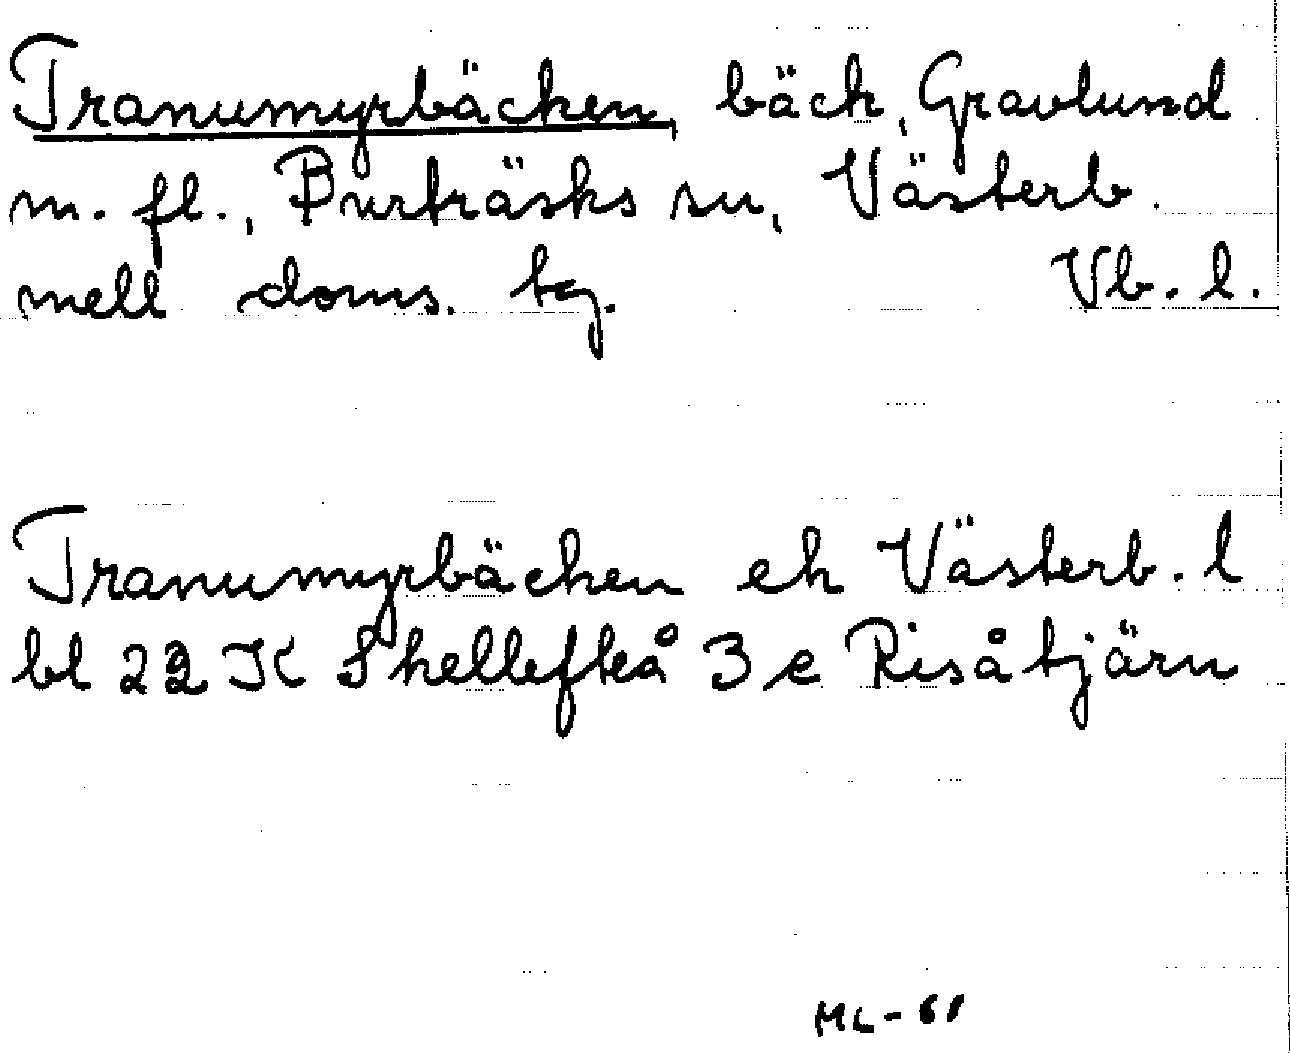 Tranumyrbäcken, bäck, Gravlund
m. fl., Burträsks sn, Västerb.
mell doms. tg. Vb. l.
Tranumyrbäcken ek Västerb. l
bl 22 K Skellefteå 3 e Risåtjärn
ML-61